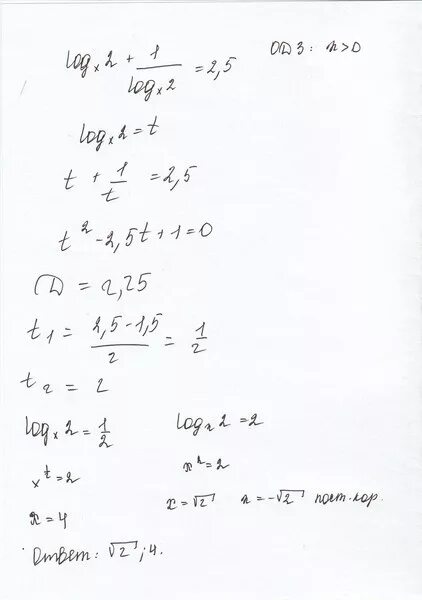 log_x 2 + 1/log_x 2 = 2,5 ОДЗ: x>0
log_x 2 = t
t + 1/t = 2,5
t² - 2,5t + 1 = 0
D = 2,25
t₁ = (2,5-1,5)/2 = 1/2
t₂ = 2
log_x 2 = 1/2 log_x 2 = 2
x^½ = 2 x² = 2
x = 4 x = √2 x = -√2 пост. кор.
Ответ: √2; 4.